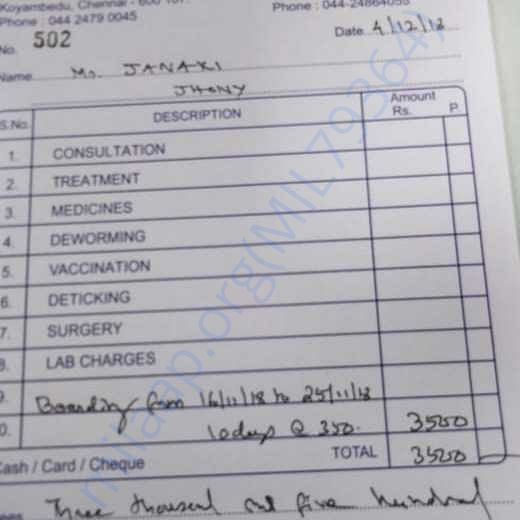 Koyambedu, Chennai - 600 107.
Phone : 044 2479 0045
Phone : 044-24864055
No. 502
Date 4/12/18
Name Ms. JANAKI
JHONY
S.No. DESCRIPTION Amount Rs. P.
1. CONSULTATION
2. TREATMENT
3. MEDICINES
4. DEWORMING
5. VACCINATION
6. DETICKING
7. SURGERY
8. LAB CHARGES
9. Boarding from 16/11/18 to 25/11/18
0. 10days @ 350. 3500
Cash / Card / Cheque TOTAL 3500
Three thousand and five hundred
milaap.org(MIL79364)